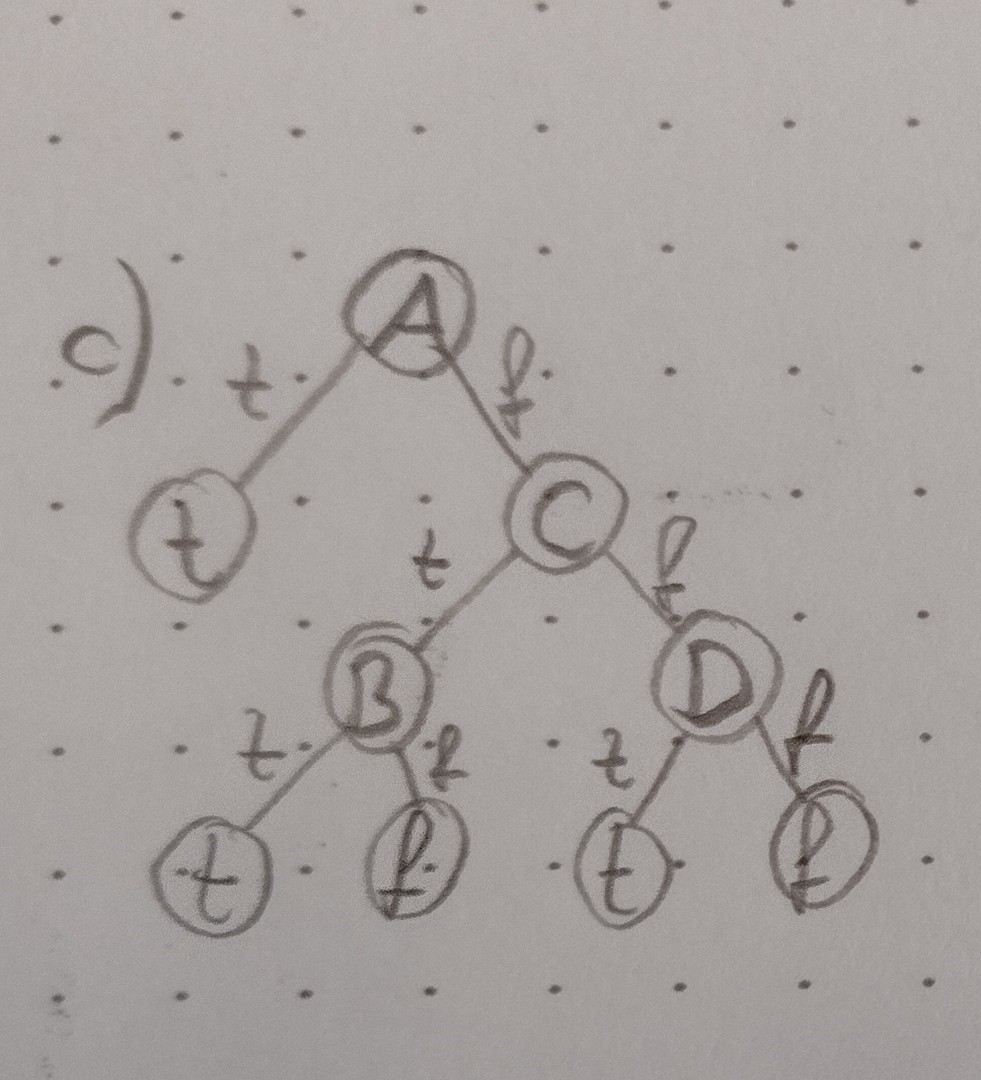 c)
A
t f
t C
t f
B D
t f t f
t f t f